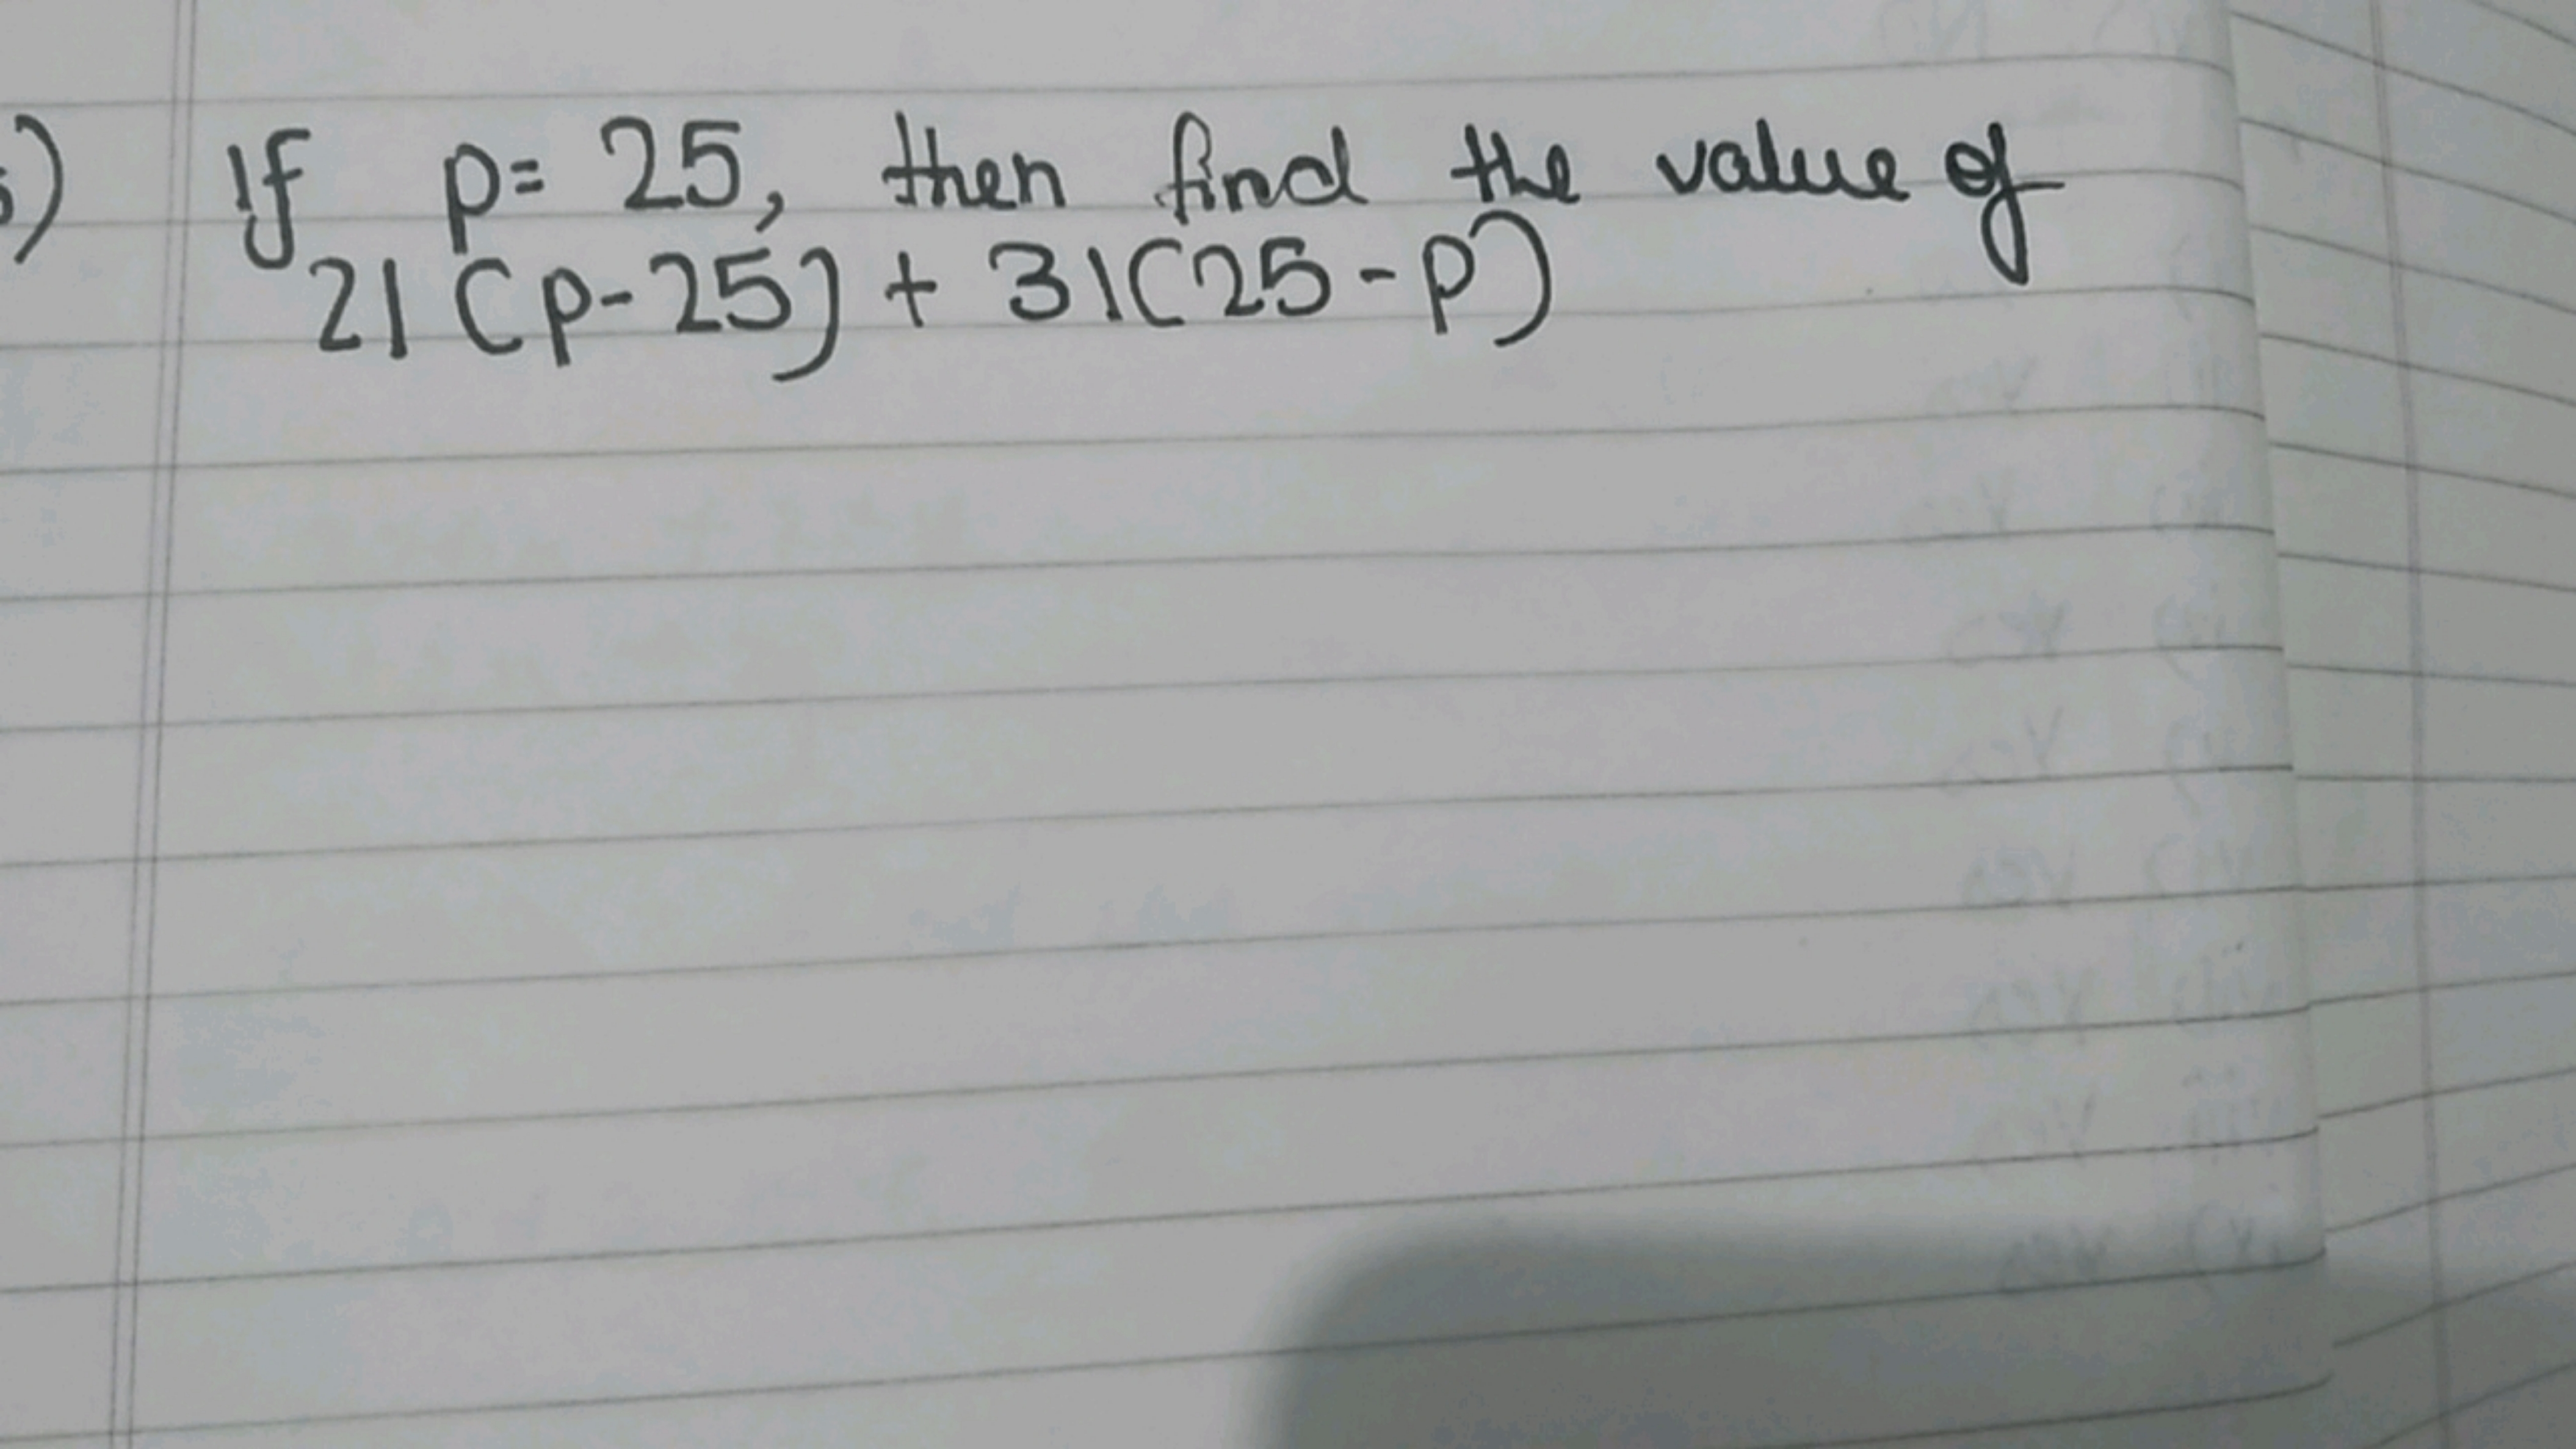 ) If p= 25, then find the value of
21 (p-25) + 31(25-p)